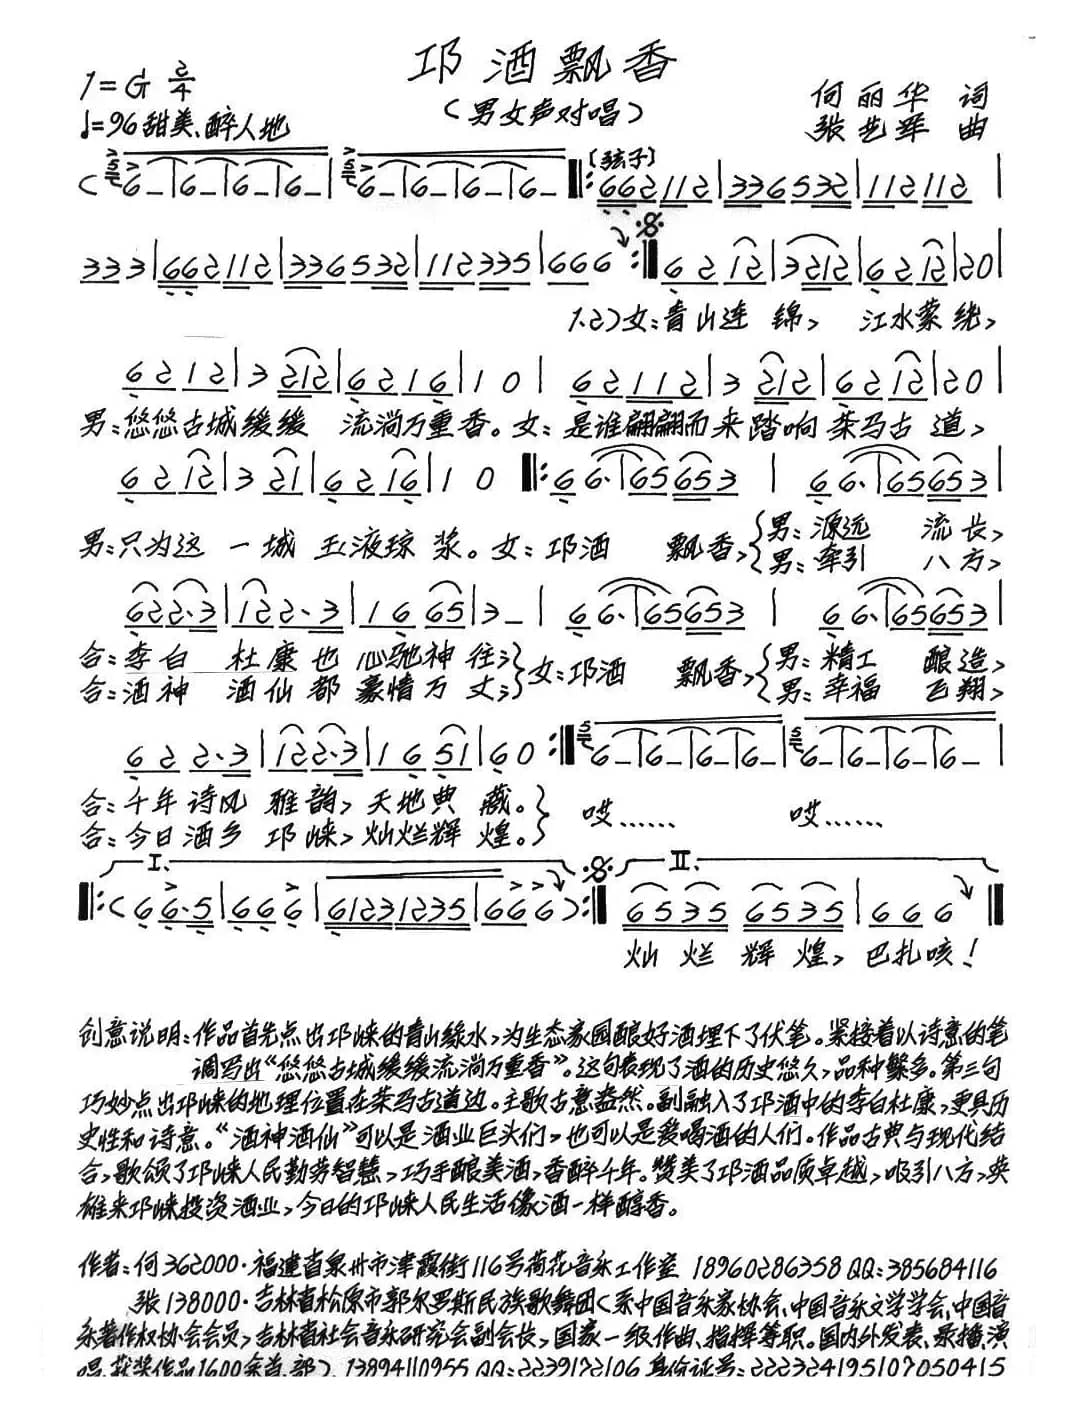 邛酒飘香
1=G 2/4
(男女声对唱)
何丽华 词
♩=96 甜美、醉人地
张艺军 曲
[弦子]
(6-|6-|6-|6-|6-|6-|6-|6-‖:662112|336532|112112|
333|662112|336532|112335|666:‖6212|3212|6212|20|
1.2)女:青山连锦, 江水萦绕,
6212|3212|6216|10|62112|3212|6212|20|
男:悠悠古城缓缓 流淌万重香。女:是谁翩翩而来踏响茶马古道,
6212|321|6216|10‖:66·|65653|66·|65653|
男:只为这一城玉液琼浆。女:邛酒 飘香,{男:源远 流长,
男:牵引 八方,
622·3|122·3|1665|3-|66·|65653|66·|65653|
合:李白 杜康也心驰神往;}女:邛酒 飘香,{男:精工 酿造,
合:酒神 酒仙都豪情万丈;} {男:幸福 飞翔,
622·3|122·3|1651|60:‖6-|6-|6-|6-|6-|6-|6-|6-|
合:千年诗风 雅韵,天地典藏。} 哎…… 哎……
合:今日酒乡 邛崃,灿烂辉煌。}
I. II.
‖:(66·5|666|61231235|666):‖6535 6535|666‖
灿烂辉煌,巴扎咳!
创意说明:作品首先点出邛崃的青山绿水,为生态家园酿好酒埋下了伏笔。紧接着以诗意的笔
调写出“悠悠古城缓缓流淌万重香”。这句表现了酒的历史悠久,品种繁多。第三句
巧妙点出邛崃的地理位置在茶马古道边。主歌古意盎然。副融入了邛酒中的李白杜康,更具历
史性和诗意。“酒神酒仙”可以是酒业巨头们,也可以是爱喝酒的人们。作品古典与现代结
合,歌颂了邛崃人民勤劳智慧,巧手酿美酒,香醉千年。赞美了邛酒品质卓越,吸引八方,英
雄来邛崃投资酒业,今日的邛崃人民生活像酒一样醇香。
作者:何362000·福建省泉州市津霞街116号荷花音乐工作室 18960286358 QQ:385684116
张138000·吉林省松原市郭尔罗斯民族歌舞团(系中国音乐家协会、中国音乐文学学会、中国音
乐著作权协会会员,吉林省社会音乐研究会副会长,国家一级作曲、指挥等职。国内外发表、录播、演
唱、获奖作品1600余首、部)、13894110955 QQ:2239172106 身份证号:222324195107050415